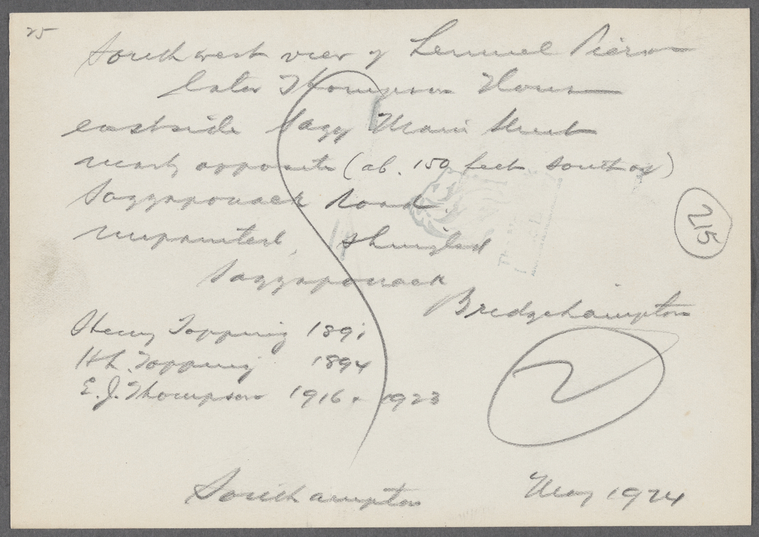 25
Southwest view of Lemuel Pierson
later Thompson House
east side Sagg Main Street
nearly opposite (ab. 150 feet south of)
Saggaponack Road.
unpainted, shingled
Saggaponack
215
Bridgehampton
Henry Topping 1891
H. L. Topping 1894
E. J. Thompson 1916 + 1923
Southampton May 1924